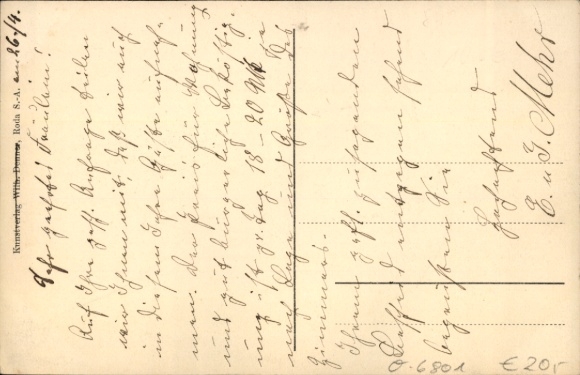 Kunstverlag Wilh. Roda S.-A.
am 26./4.
Sehr geehrtes Fräulein!
Auf Ihre gefl. Anfrage teilen
wir Ihnen mit, daß wir auch
in diesem Jahre Gäste aufneh-
men. Der Preis für Wohnung
und gut bürgerliche Beköstig-
ung ist pr. Tag 18 – 20 Mk je
nach Lage und Größe des
Zimmers.
Ihrer gefl. zusagenden
Antwort entgegen sehend
Sie
Hochachtend
E. u. J. Mehr
O-6801
€ 20,-